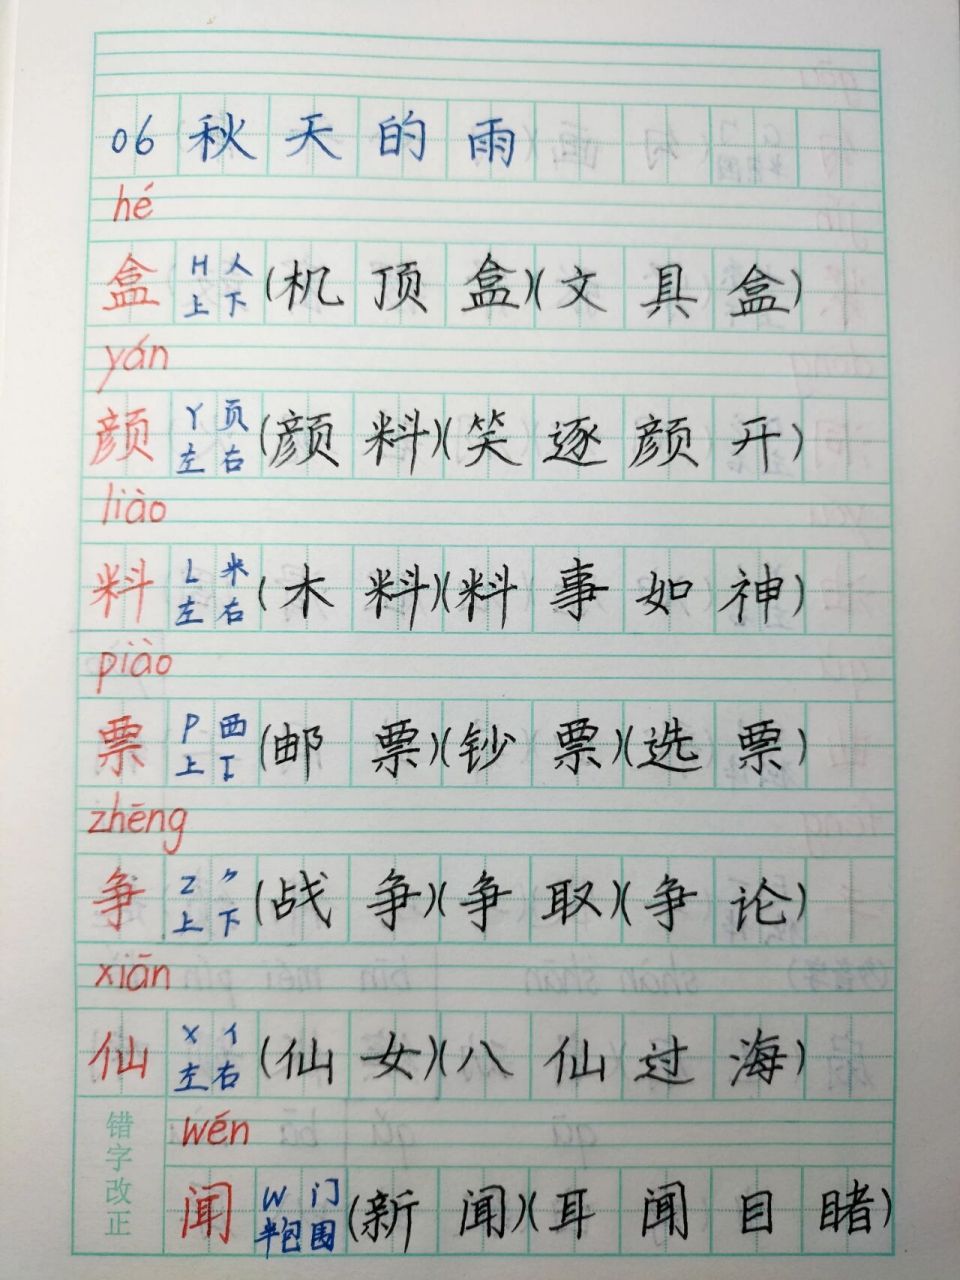 06 秋天的雨
hé
盒 H 人 上下 (机顶盒)(文具盒)
yán
颜 Y 页 左右 (颜料)(笑逐颜开)
liào
料 L 米 左右 (木料)(料事如神)
piào
票 P 覀 上下 (邮票)(钞票)(选票)
zhēng
争 Z ⺈ 上下 (战争)(争取)(争论)
xiān
仙 X 亻 左右 (仙女)(八仙过海)
wén
闻 W 门 半包围 (新闻)(耳闻目睹)
错字改正